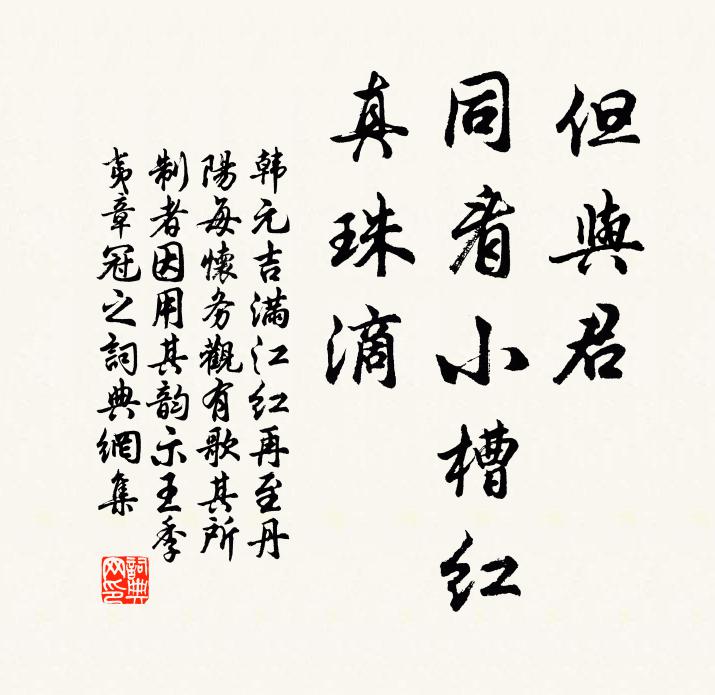 但與君
同看小槽紅
真珠滴
韩元吉滿江红再至丹
陽每懷务觀有歌其所
制者因用其韵示王季
夷章冠之詞典網集
詞典网印